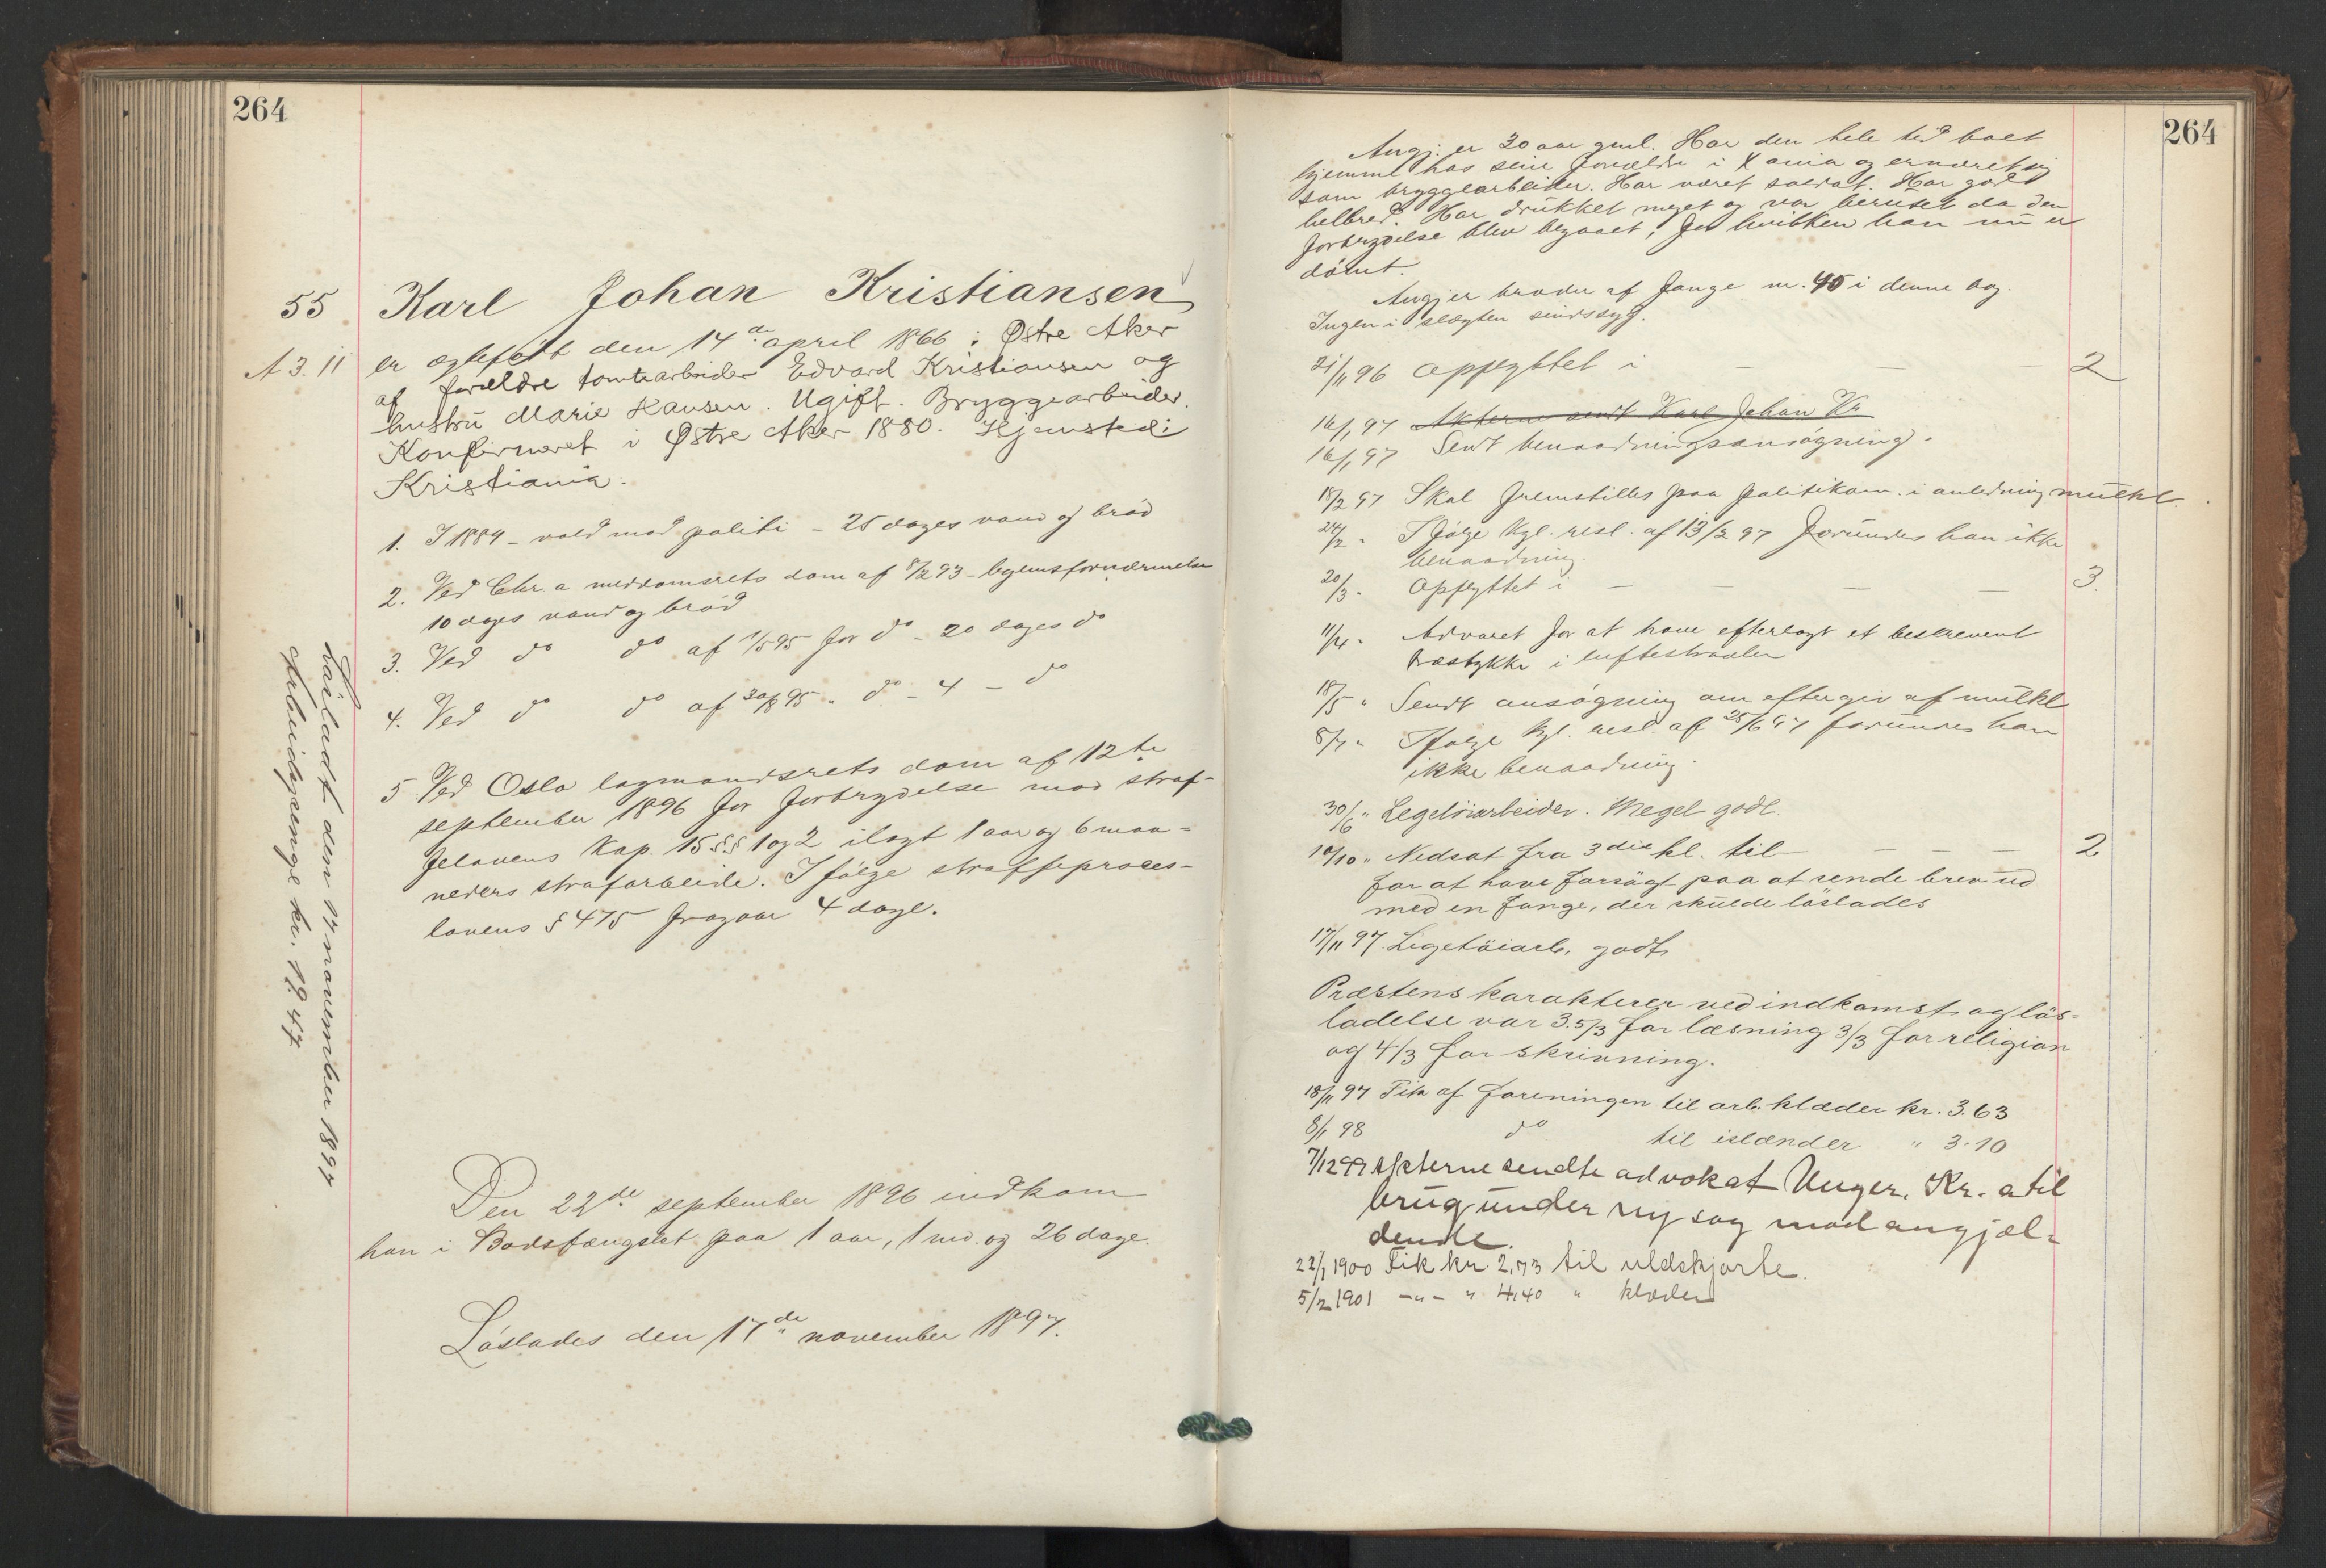 264
55 Karl Johan Kristiansen
A 3. 11 er ægtefödt den 14de april 1866 i Østre Aker
af forældre tomtearbeider Edvard Kristiansen og
hustru Marie Hansen. Ugift. Bryggearbeider.
Konfirmeret i Østre Aker 1880. Hjemsted i
Kristiania.
1. I 1884 - vold mod politi - 25 dages vand og bröd
2. Ved Chr.a meddomsrets dom af 8/2 93 - legemsfornærmelse
10 dages vand og bröd
3. Ved do do af 1/5 95 for do - 20 dages do
4. Ved do do af 30/8 95 " do - 4 - do
5 Ved Oslo lagmandsrets dom af 12te
september 1896 for forbrydelse mod straf-
felovens kap. 15 §§ 1 og 2 ilagt 1 aar og 6 maa-
neders strafarbeide. I fölge straffeproces-
lovens § 475 fragaar 4 dage.
Den 22de september 1896 indkom
han i Bodsfængslet paa 1 aar, 1 md. og 26 dage.
Löslades den 17de november 1897.
Lösladt den 17 november 1897
Arbeidspenge kr. 19.47
264
Angj. er 30 aar gml. Har den hele tid boet
hjemme hos sine forældre i Xania og ernæret sig
som bryggearbeider. Har været soldat. Har godt
helbred. Har drukket meget og var beruset da den
forbrydelse blev begaaet, for hvilken han nu er
dömt.
Angj er broder af fange nr. 45 i denne bog.
Ingen i slægten sindssyg.
21/11 96 Opflyttet i — — — 2
16/1 97 Akterne sendt Karl Johan Kr
16/1 97 Sendt benaadningsansögning.
18/2 97 Skal fremstilles paa politikam. i anledning mulkt.
24/2 " Ifölge kgl. resl. af 13/2 97 forundes han ikke
benaadning.
20/3 " Opflyttet i — — — 3.
11/4 " Advaret for at have efterlagt et beskrevent
træstykke i luftestraalen
18/5 " Sendt ansögning om eftergiv af mulkt
8/7 " Ifölge kgl. resl. af 25/6 97 forundes han
ikke benaadning.
30/6 " Legetöiarbeider. Meget godt.
10/10 " Nedsat fra 3die kl. til — — — 2
for at have forsögt paa at sende brev ud
med en fange, der skulde löslades
17/11 97. Legetöiarb. godt.
Præstens karakterer ved indkomst og lös-
ladelse var 3.5/3 for læsning 3/3 for religion
og 4/3 for skrivning.
18/11 97 Fik af foreningen til arb.klæder kr. 3.63
8/1 98 do til islænder " 3.10
7/12 99 Akterne sendte advokat Unger, Kr.a til
brug under ny sag mod angjæl-
dende.
22/1 1900 Fik kr. 2,73 til uldskjorte.
5/2 1901 -"- " 4,40 " klæder